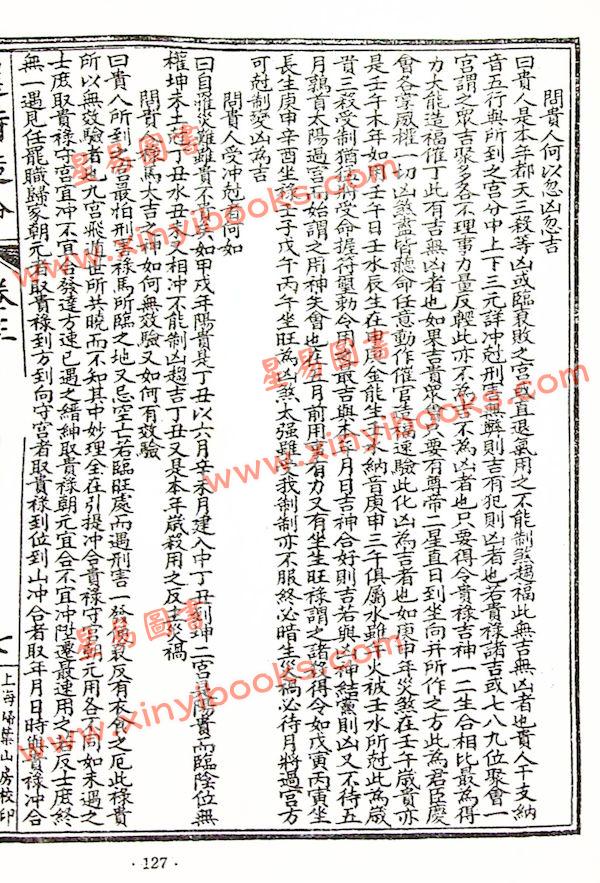 問貴人何以忽凶忽吉
曰貴人是本年都天三殺等凶或臨衰敗之宮或直退氣用之不能制煞趨福此無吉無凶者也貴人干支納
音五行與所到之宮分中上下三元詳冲尅刑害無弊則吉有犯則凶者也若貴祿諸吉或七八九位聚會一
宮謂之眾吉聚多各不理事力量反輕此亦不為吉不為凶者也只要得令貴祿吉神一二生合相比最為得
力大能造福催丁此有吉無凶者也如果吉貴眾多只要有尊帝二星直日到坐向幷所作之方此為君臣慶
會各掌威權一切凶煞盡皆聽命任意動作催官催福速驗此化凶為吉者也如庚申年災煞在壬午歲貴亦
是壬午本年如用壬午日壬水辰生在申庚金能生壬水納音庚申三午俱屬水雖午火被壬水所尅此為歲
貴三殺受制猶將受命握符璽勅令用之最吉與本年月日吉神合好則吉若與凶神結黨則凶又不待五
月鶉首太陽過宮而始謂之用神失會也在五月前用更有力又有坐生旺祿謂之諸將得令如戊寅丙寅坐
長生庚申辛酉坐祿壬子戊午丙午坐旺為凶煞太强難受我制制亦不服終必暗生災禍必待月將過宮方
可尅制變凶為吉
問貴人受冲尅者何如
曰自罹災難雖貴不貴矣如甲戌年陽貴是丁丑以六月辛未月建入中丁丑到坤二宮是陽貴而臨陰位無
權坤未土尅丁丑水丑未又相冲不能制凶趨吉丁丑又是本年歲殺用之反主災禍
問貴人祿馬大吉之神如何無效驗又如何有效驗
曰貴人所到之宮最怕刑害祿馬所臨之地又忌空亡若臨旺處而遇刑害一發便衰反有衣食之厄此祿貴
所以無效驗者也九宮飛遁世所共曉而不知其中妙理全在引提冲合貴祿守宮朝元用各不同如未遇之
士庶取貴祿守宮宜冲不宜合發達方速已遇之縉紳取貴祿朝元宜合不宜冲陞遷最速用之若反士庶終
無一遇見任罷職歸家朝元者取貴祿到方到向守宮者取貴祿到位到山冲合者取年月日時與貴祿冲合
卷三
七
上海埽葉山房校印
星易圖書
www.xinyibooks.com
星易圖書
www.xinyibooks.com
星易圖書
www.xinyibooks.com
星易圖書
www.xinyibooks.com
· 127 ·